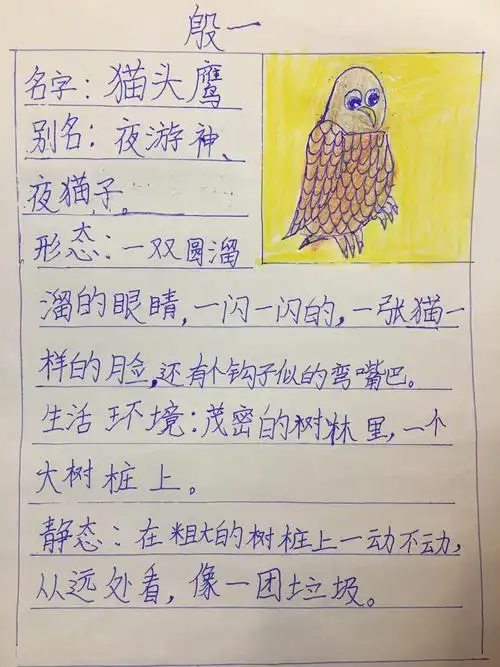 殷一
名字：猫头鹰
别名：夜游神、
夜猫子。
形态：一双圆溜
溜的眼睛，一闪一闪的，一张猫一
样的脸，还有个钩子似的弯嘴巴。
生活环境：茂密的树林里，一个
大树桩上。
静态：在粗大的树桩上一动不动，
从远处看，像一团垃圾。